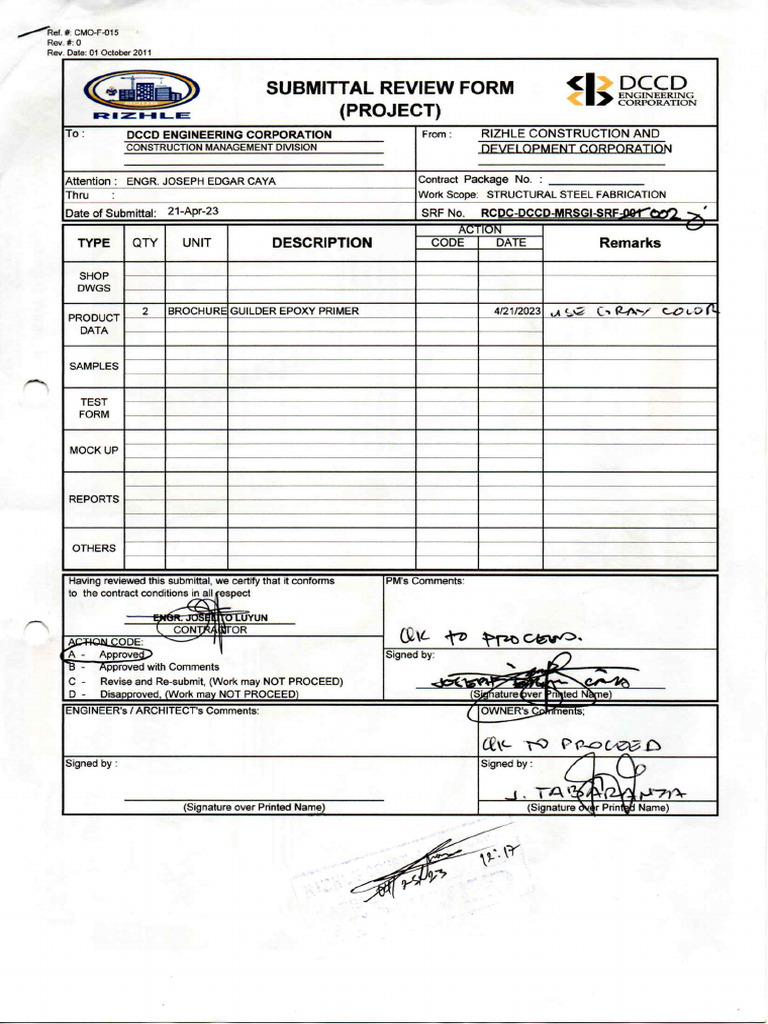 Ref. #: CMO-F-015
Rev. #: 0
Rev. Date: 01 October 2011
RIZHLE
SUBMITTAL REVIEW FORM
(PROJECT)
DCCD
ENGINEERING
CORPORATION
To : DCCD ENGINEERING CORPORATION
CONSTRUCTION MANAGEMENT DIVISION
From : RIZHLE CONSTRUCTION AND
DEVELOPMENT CORPORATION
Attention : ENGR. JOSEPH EDGAR CAYA
Thru :
Date of Submittal: 21-Apr-23
Contract Package No. :
Work Scope: STRUCTURAL STEEL FABRICATION
SRF No. RCDC-DCCD-MRSGI-SRF-001 002
TYPE QTY UNIT DESCRIPTION ACTION Remarks
CODE DATE
SHOP
DWGS
PRODUCT
DATA
2 BROCHURE GUILDER EPOXY PRIMER 4/21/2023 USE GRAY COLOR
SAMPLES
TEST
FORM
MOCK UP
REPORTS
OTHERS
Having reviewed this submittal, we certify that it conforms
to the contract conditions in all respect
ENGR. JOSELITO LUYUN
CONTRACTOR
ACTION CODE:
A - Approved
B - Approved with Comments
C - Revise and Re-submit, (Work may NOT PROCEED)
D - Disapproved, (Work may NOT PROCEED)
PM's Comments:
OK TO PROCEED.
Signed by:
JOSEPH EDGAR CAYA
(Signature over Printed Name)
ENGINEER's / ARCHITECT's Comments:
Signed by :
(Signature over Printed Name)
OWNER's Comments;
OK TO PROCEED
Signed by :
J. TABARANZA
(Signature over Printed Name)
12:17